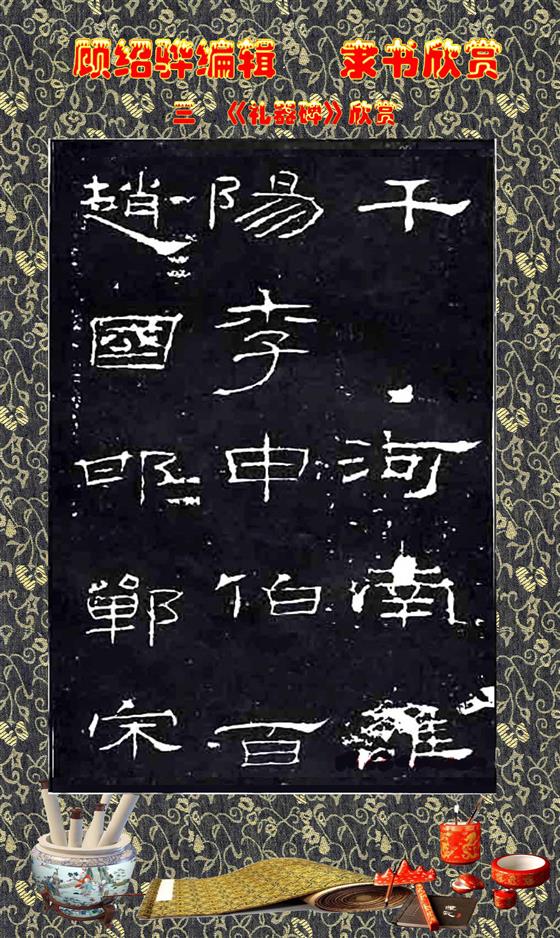 顾绍骅编辑 隶书欣赏
三 《礼器碑》欣赏
千河南雒
陽李申伯百
趙國邯鄲宋